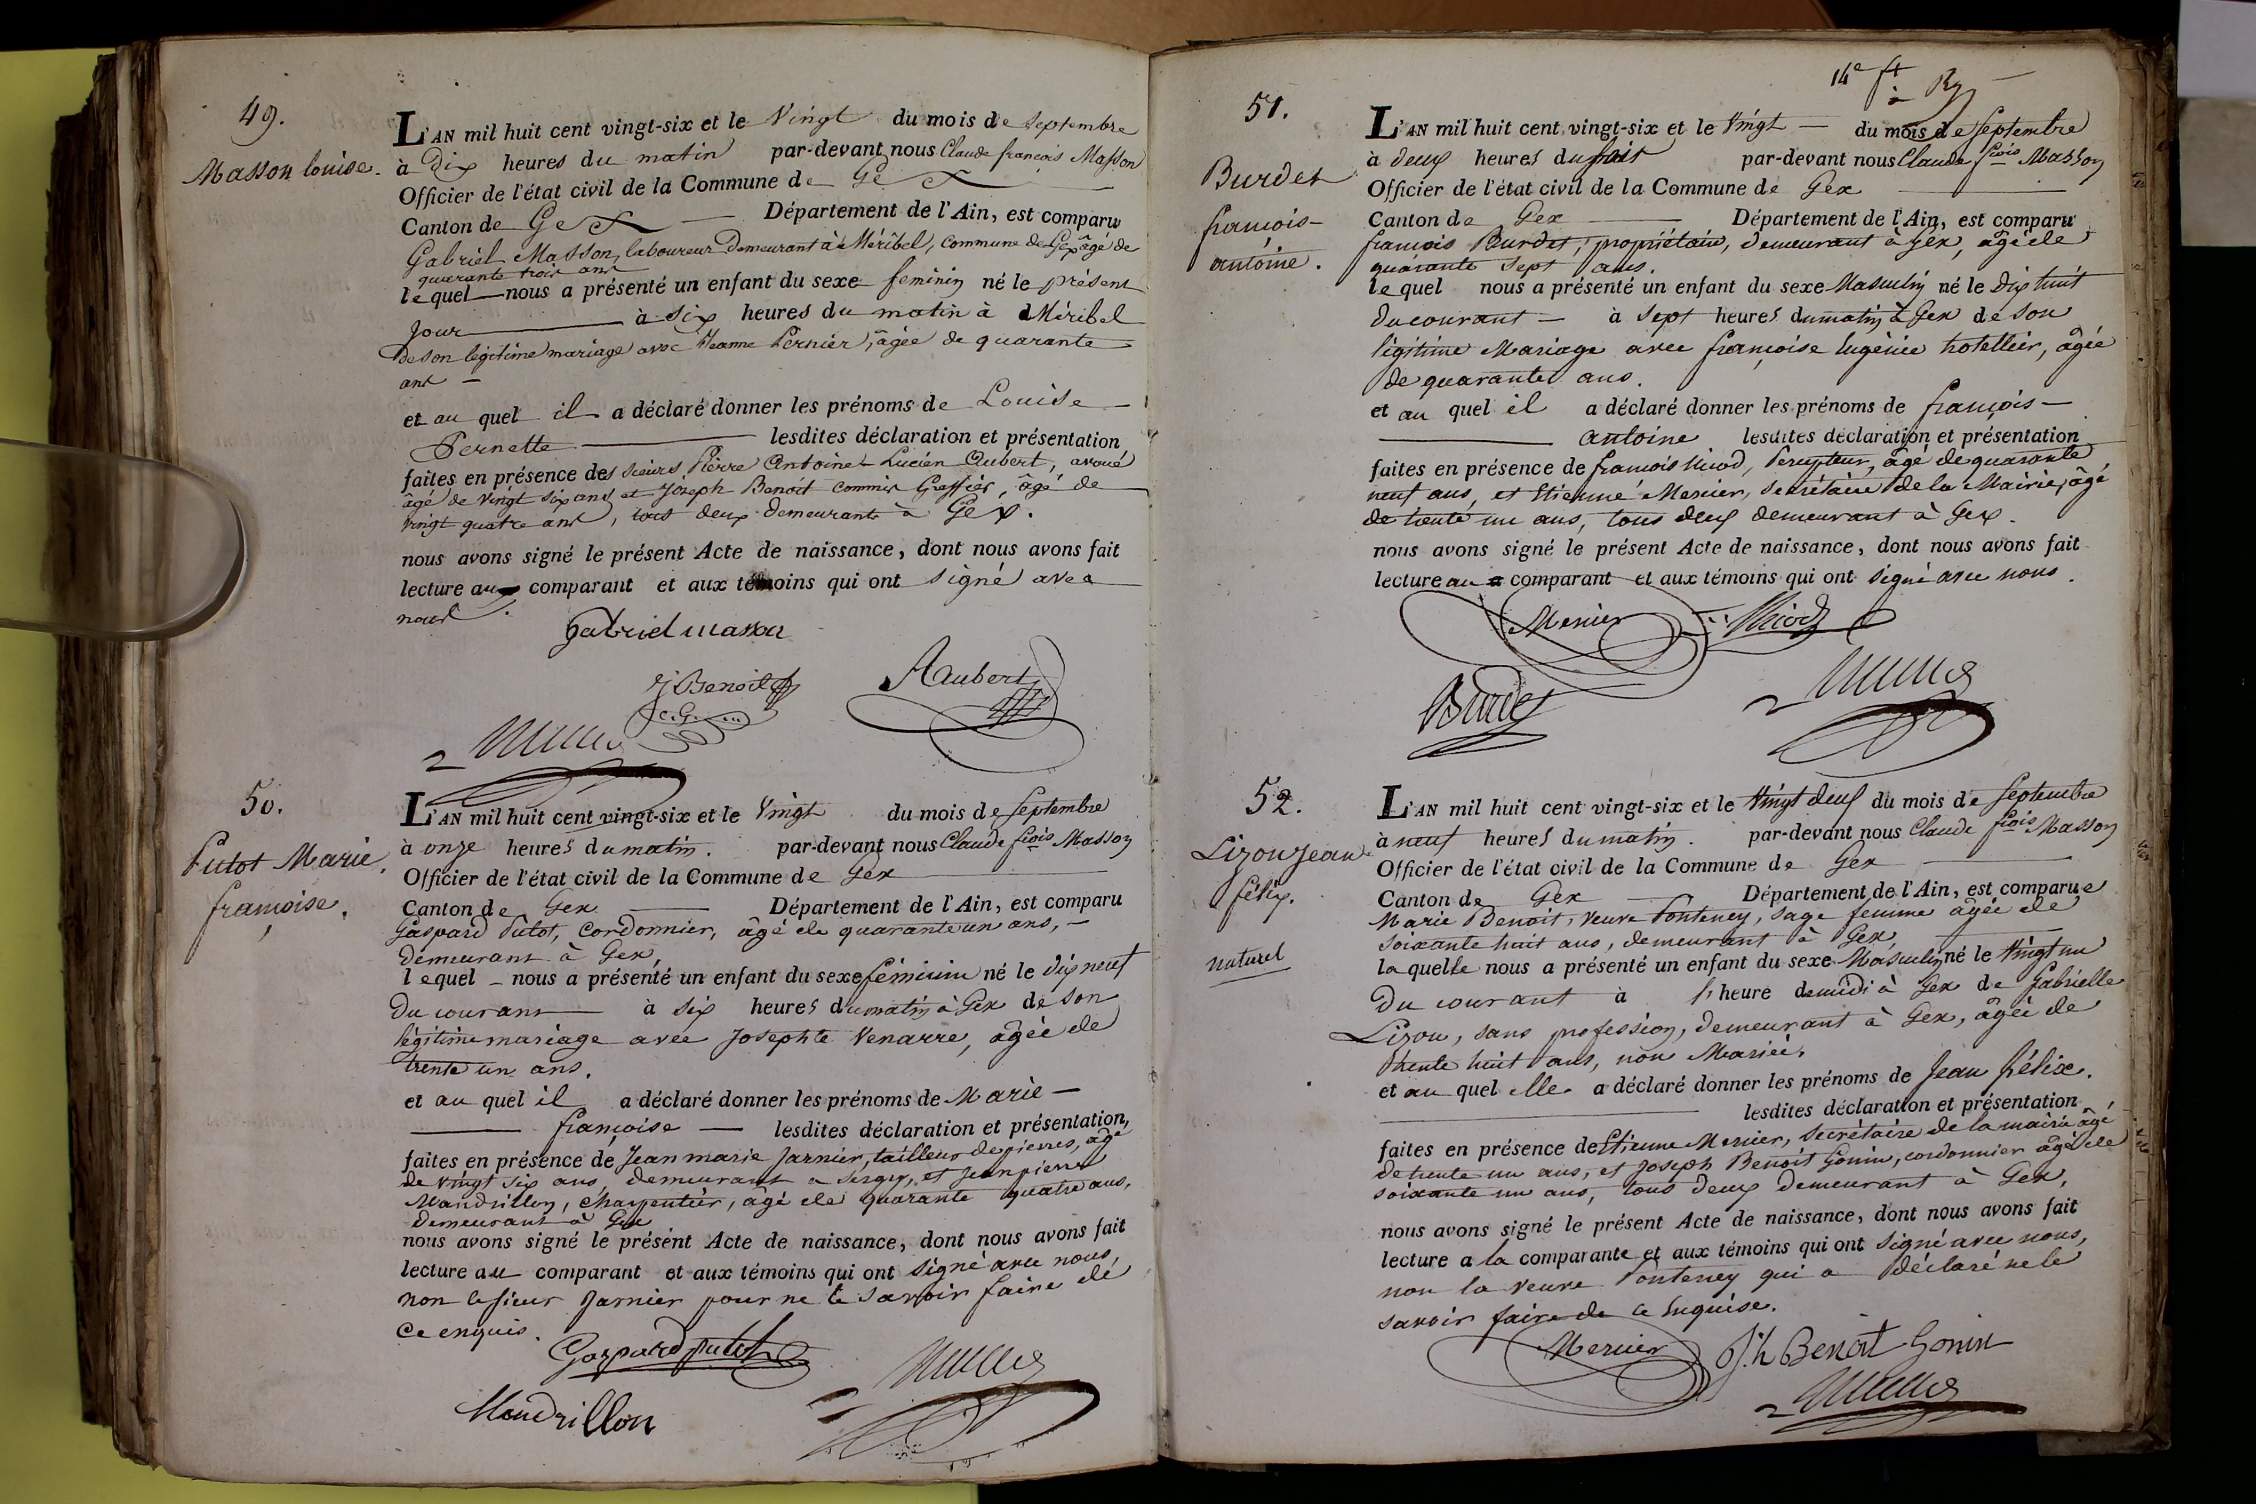 49.
Masson louise.
L'AN mil huit cent vingt-six et le Vingt du mois de Septembre
à Dix heures du matin par-devant nous Claude françois Masson
Officier de l'état civil de la Commune de Gex
Canton de Gex Département de l'Ain, est comparu
Gabriel Masson, laboureur Demeurant à Méribel, Commune de Gex âgé de
quarante trois ans
lequel nous a présenté un enfant du sexe feminin né le présent
Jour à six heures du matin à Méribel
De son légitime mariage avec Jeanne Pernier, âgée de quarante
ans
et au quel il a déclaré donner les prénoms de Louise
Pernette lesdites déclaration et présentation
faites en présence des sieurs Pierre Antoine Lucien Aubert, avoué
âgé de vingt six ans et Joseph Benoit commis Greffier, âgé de
vingt quatre ans, tous deux demeurants à Gex.
nous avons signé le présent Acte de naissance, dont nous avons fait
lecture au comparant et aux témoins qui ont signé avec
nous.
Gabriel masson
J Benoit
c. G.
Aubert
50.
Putot Marie
françoise.
L'AN mil huit cent vingt-six et le Vingt du mois de Septembre
à onze heures du matin. par-devant nous Claude fcois Masson
Officier de l'état civil de la Commune de Gex
Canton de Gex Département de l'Ain, est comparu
Gaspard Putot, Cordonnier, âgé de quarante un ans, —
demeurant à Gex,
lequel nous a présenté un enfant du sexe féminin né le dix neuf
Du courant à six heures du matin à Gex de son
légitime mariage avec Josephte Venarre, âgée de
trente un ans.
et au quel il a déclaré donner les prénoms de Marie —
françoise — lesdites déclaration et présentation,
faites en présence de Jean marie Jarnier, tailleur de pierres, âgé
de vingt six ans, demeurant a Sergy, et Jean pierre
Mandrillon, Charpentier, âgé de quarante quatre ans,
demeurant à Gex
nous avons signé le présent Acte de naissance, dont nous avons fait
lecture au comparant et aux témoins qui ont signé avec nous,
non le sieur Jarnier pour ne le savoir faire de
ce enquis.
Gaspard putot
Mandrillon
14e ft
51.
Burdet
françois-
antoine.
L'AN mil huit cent vingt-six et le Vingt — du mois de Septembre
à deux heures du soir par-devant nous Claude fcois Masson
Officier de l'état civil de la Commune de Gex
Canton de Gex Département de l'Ain, est comparu
françois Burdet, propriétaire, demeurant à Gex, âgé de
quarante sept ans.
lequel nous a présenté un enfant du sexe Masculin né le Dix huit
du courant — à sept heures du matin à Gex de son
légitime Mariage avec françoise Eugénie hotellier, âgée
de quarante ans.
et au quel il a déclaré donner les prénoms de françois —
antoine lesdites déclaration et présentation
faites en présence de françois Nicod, Percepteur, âgé de quarante
neuf ans, et Etienne Mercier, secrétaire de la Mairie, âgé
de trente un ans, tous deux demeurant à Gex.
nous avons signé le présent Acte de naissance, dont nous avons fait
lecture au comparant et aux témoins qui ont signé avec nous.
Mercier
Nicod
Burdet
52.
Lizon Jean
félix.
naturel
L'AN mil huit cent vingt-six et le Vingt deux du mois de Septembre
à neuf heures du matin. par-devant nous Claude fcois Masson
Officier de l'état civil de la Commune de Gex
Canton de Gex Département de l'Ain, est comparue
Marie Benoit, veuve Ponteney, sage femme âgée de
soixante huit ans, demeurant à Gex,
laquelle nous a présenté un enfant du sexe Masculin né le Vingt un
Du courant à 1 heure de midi à Gex de Gabrielle
Lizon, sans profession, demeurant à Gex, âgée de
trente huit ans, non Mariée.
et au quel elle a déclaré donner les prénoms de Jean félix.
lesdites déclaration et présentation
faites en présence de Etienne Mercier, secrétaire de la mairie âgé
de trente un ans, et Joseph Benoit Gonin, cordonnier âgé de
soixante un ans, tous deux demeurant à Gex,
nous avons signé le présent Acte de naissance, dont nous avons fait
lecture a la comparante et aux témoins qui ont signé avec nous,
non la veuve Ponteney qui a Déclaré ne le
savoir faire de ce Enquise.
Mercier
Jh Benoit Gonin